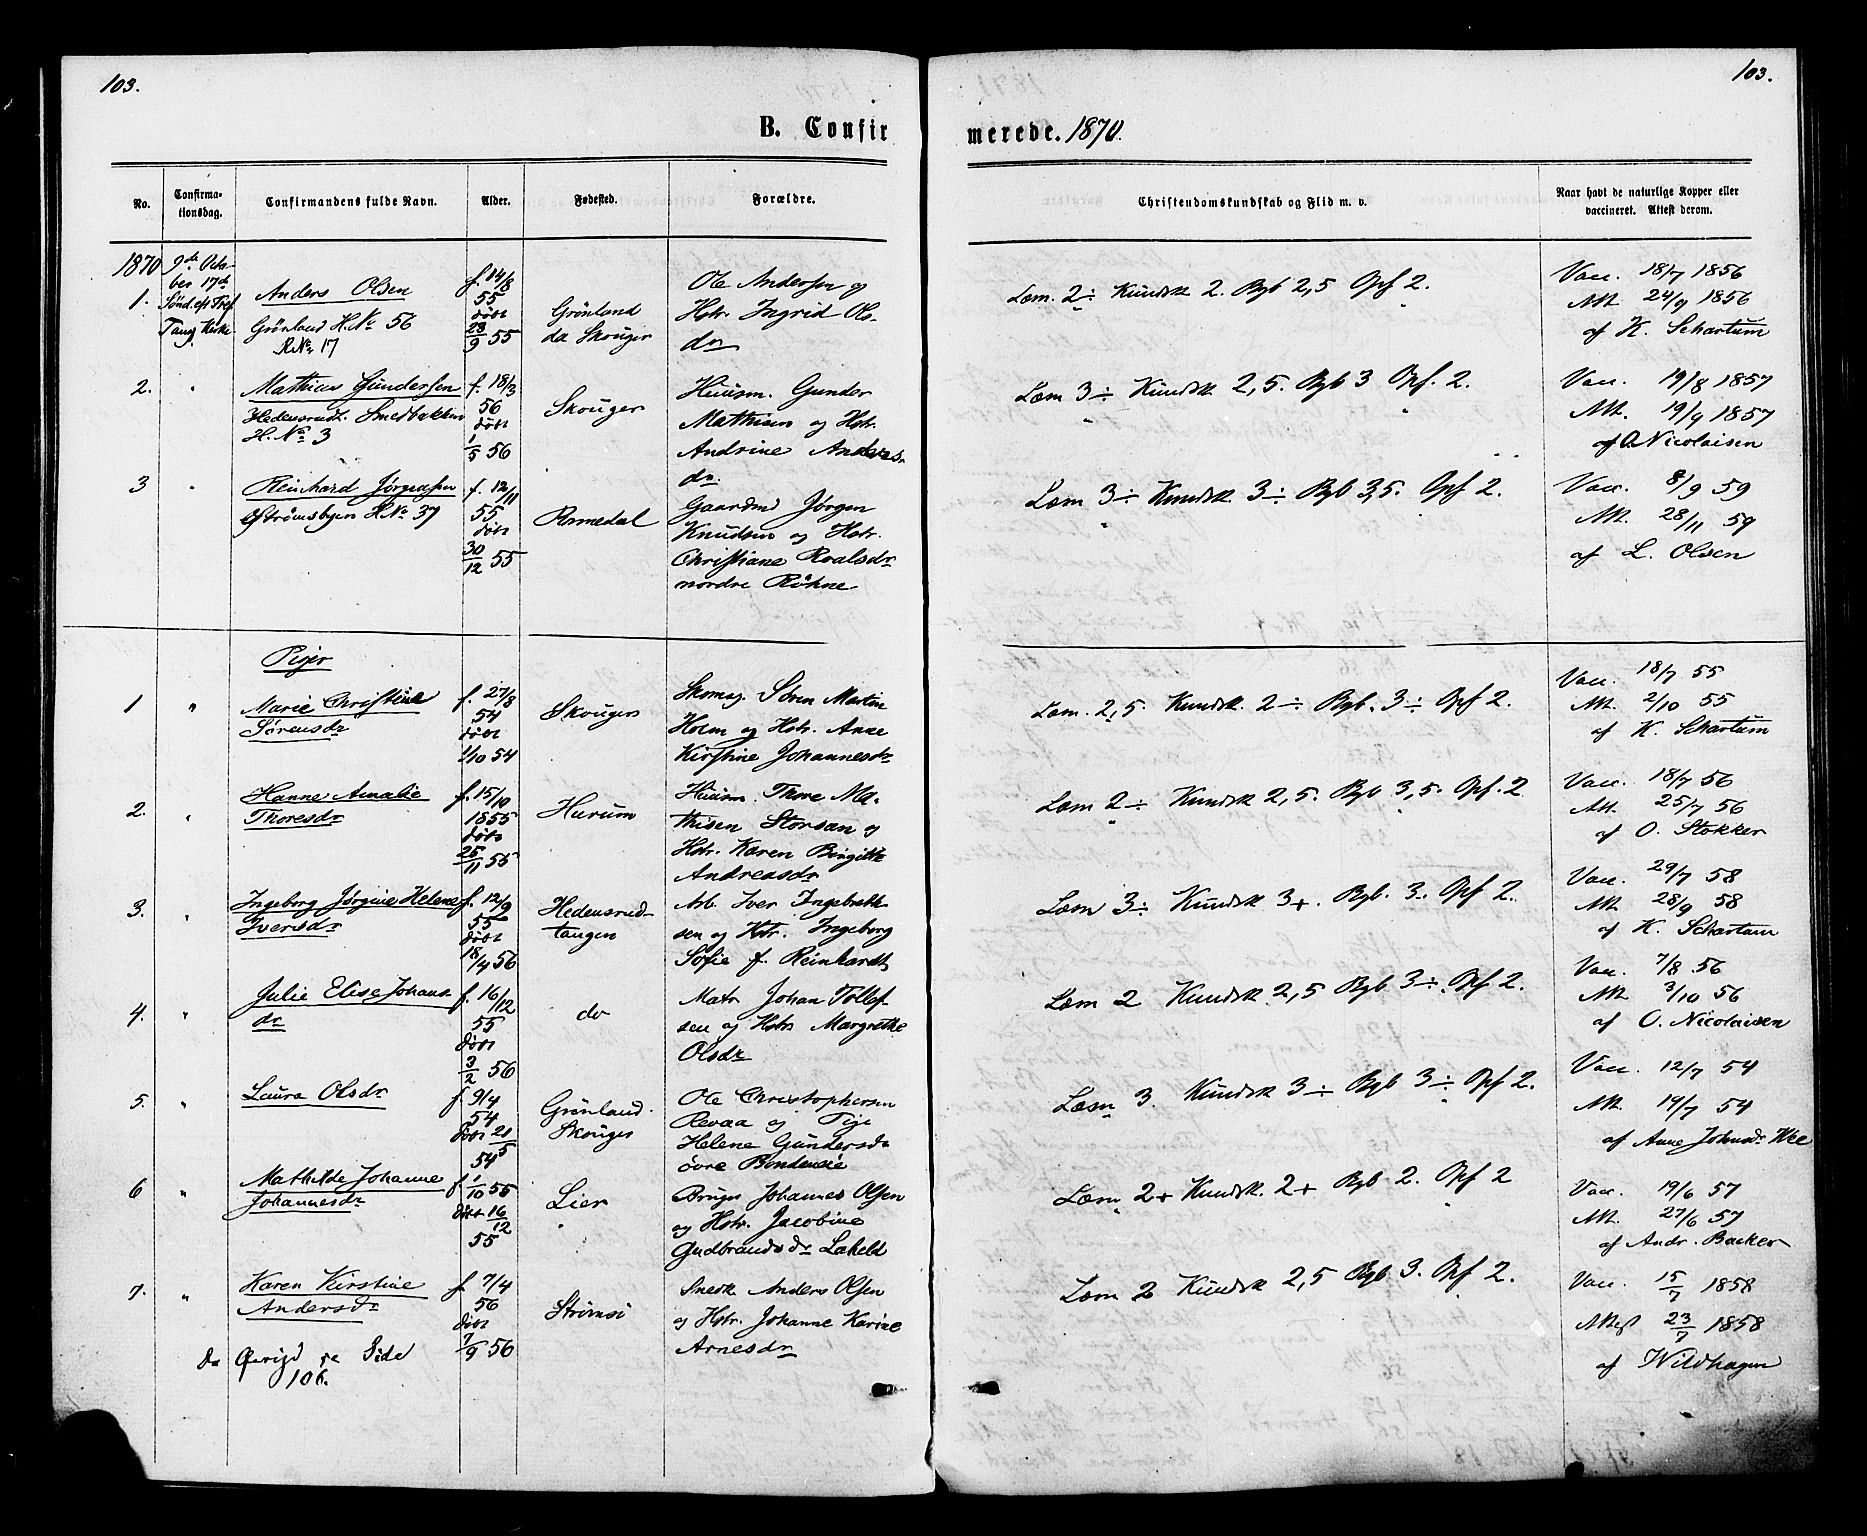 103.
103.
B. Confir
merede. 1870.
No.
Confirma-
tionsdag.
Confirmandens fulde Navn.
Alder.
Fødested.
Forældre.
Christendomskundskab og Flid m. v.
Naar havt de naturlige Kopper eller
vaccineret. Attest derom.
1870
9de Octo-
ber 17de
Sønd. eft Tref
Tang. Kirke
1.
Anders Olsen
Grönland H.No 56
RNo 17
f. 14/8
55
døbt
23/9 55
Grönland
da Skouger
Ole Andersen og
Hstr. Ingrid Ols-
dr
Læsn. 2÷ Kundsk 2. Bgb 2,5 Opf 2.
Vacc. 18/7 1856
Att. 24/9 1856
af K. Schartum
2.
"
Mathias Gundersen
Hedensrudt. Smedbakken
H. No 3
f. 18/3
56
døbt
1/5 56
Skouger
Huusm. Gunder
Mathisen og Hstr.
Andrine Andreas-
dr.
Læsn 3÷ Kundsk 2,5. Bgb 3 Opf. 2.
Vacc. 19/8 1857
Att. 19/9 1857
af O. Nicolaisen
3
"
Reinhard Jørgensen
Øströmsbyen H.No 37
f. 12/11
55
døbt
30/12 55
Romedal
Gaardmd Jørgen
Knudsen og Hstr.
Christiane Roalsdr
nordre Röhne
Læsn 3÷ Kundsk 3÷ Bgb 3,5. Opf 2.
Vacc. 8/9 59
Att. 28/11 59
af L. Olsen
Piger
1
"
Marie Christine
Sörensdr
f. 27/8
54
døbt
1/10 54
Skouger
Skomag. Sören Martin
Holm og Hstr. Anne
Kirstine Johannesdr
Læsn. 2,5 Kundsk. 2÷ Bgb. 3÷ Opf 2.
Vacc. 18/7 55
Att. 2/10 55
af K. Schartum
2.
"
Hanne Amalie
Thoresdr
f. 15/10
1855
døbt
25/11 55
Hurum
Huusm. Thore Ma-
thisen Storsan og
Hstr. Karen Birgitte
Andreasdr
Læsn 2÷ Kundsk 2,5. Bgb 3,5. Opf. 2
Vacc. 18/7 56
Att. 25/7 56
af O. Stokker
3.
"
Ingeborg Jørgine Helene
Iversdr
f. 12/9
55
døbt
18/4 56
Hedensrud-
tangen
Arb. Iver Ingebrekt-
sen og Hstr. Ingeborg
Sofie f. Reinhardt
Læsn 3÷ Kundsk 3+. Bgb. 3÷ Opf 2.
Vacc. 29/7 58
Att 28/9 58
af K. Schartum
4.
"
Julie Elise Johans-
dr
f. 16/12
55
døbt
3/2 56
do
Matr Johan Tollef-
sen og Hstr Margrethe
Olsdr
Læsn 2 Kundsk. 2,5 Bgb 3÷ Opf 2.
Vacc. 7/8 56
Att 3/10 56
af O. Nicolaisen
5.
"
Laura Olsdr
f 9/4
54
døbt 21/5
54
Grönland.
Skouger
Ole Christophersen
Revaa og Pige
Helene Gundersdr
övre Bondenseie
Læsn 3. Kundsk 3÷ Bgb 3÷ Opf 2.
Vacc. 12/7 54
Att. 19/7 54
af Anne Johnsdr Wee
6
"
Mathilde Johanne
Johannesdr
f 1/10 55
døbt 16/12
55
Lier
Bruger Johannes Olsen
og Hstr. Jacobine
Gudbrandsdr Lakeld
Læsn 2+ Kundsk. 2+ Bgb 2. Opf 2
Vacc. 19/6 57
Att. 27/6 57
af Andr. Backer
7.
"
Karen Kirstine
Andersdr
f 7/4
56
døbt
7/9 56
Strömsö
Snedk Anders Olsen
og Hstr. Johanne Karine
Arnesdr
Læsn 2 Kundsk 2,5 Bgb 3. Opf 2.
Vacc. 15/7 1858
Attest 23/7 1858
af Wildhagen
De Øvrige se Side
106.